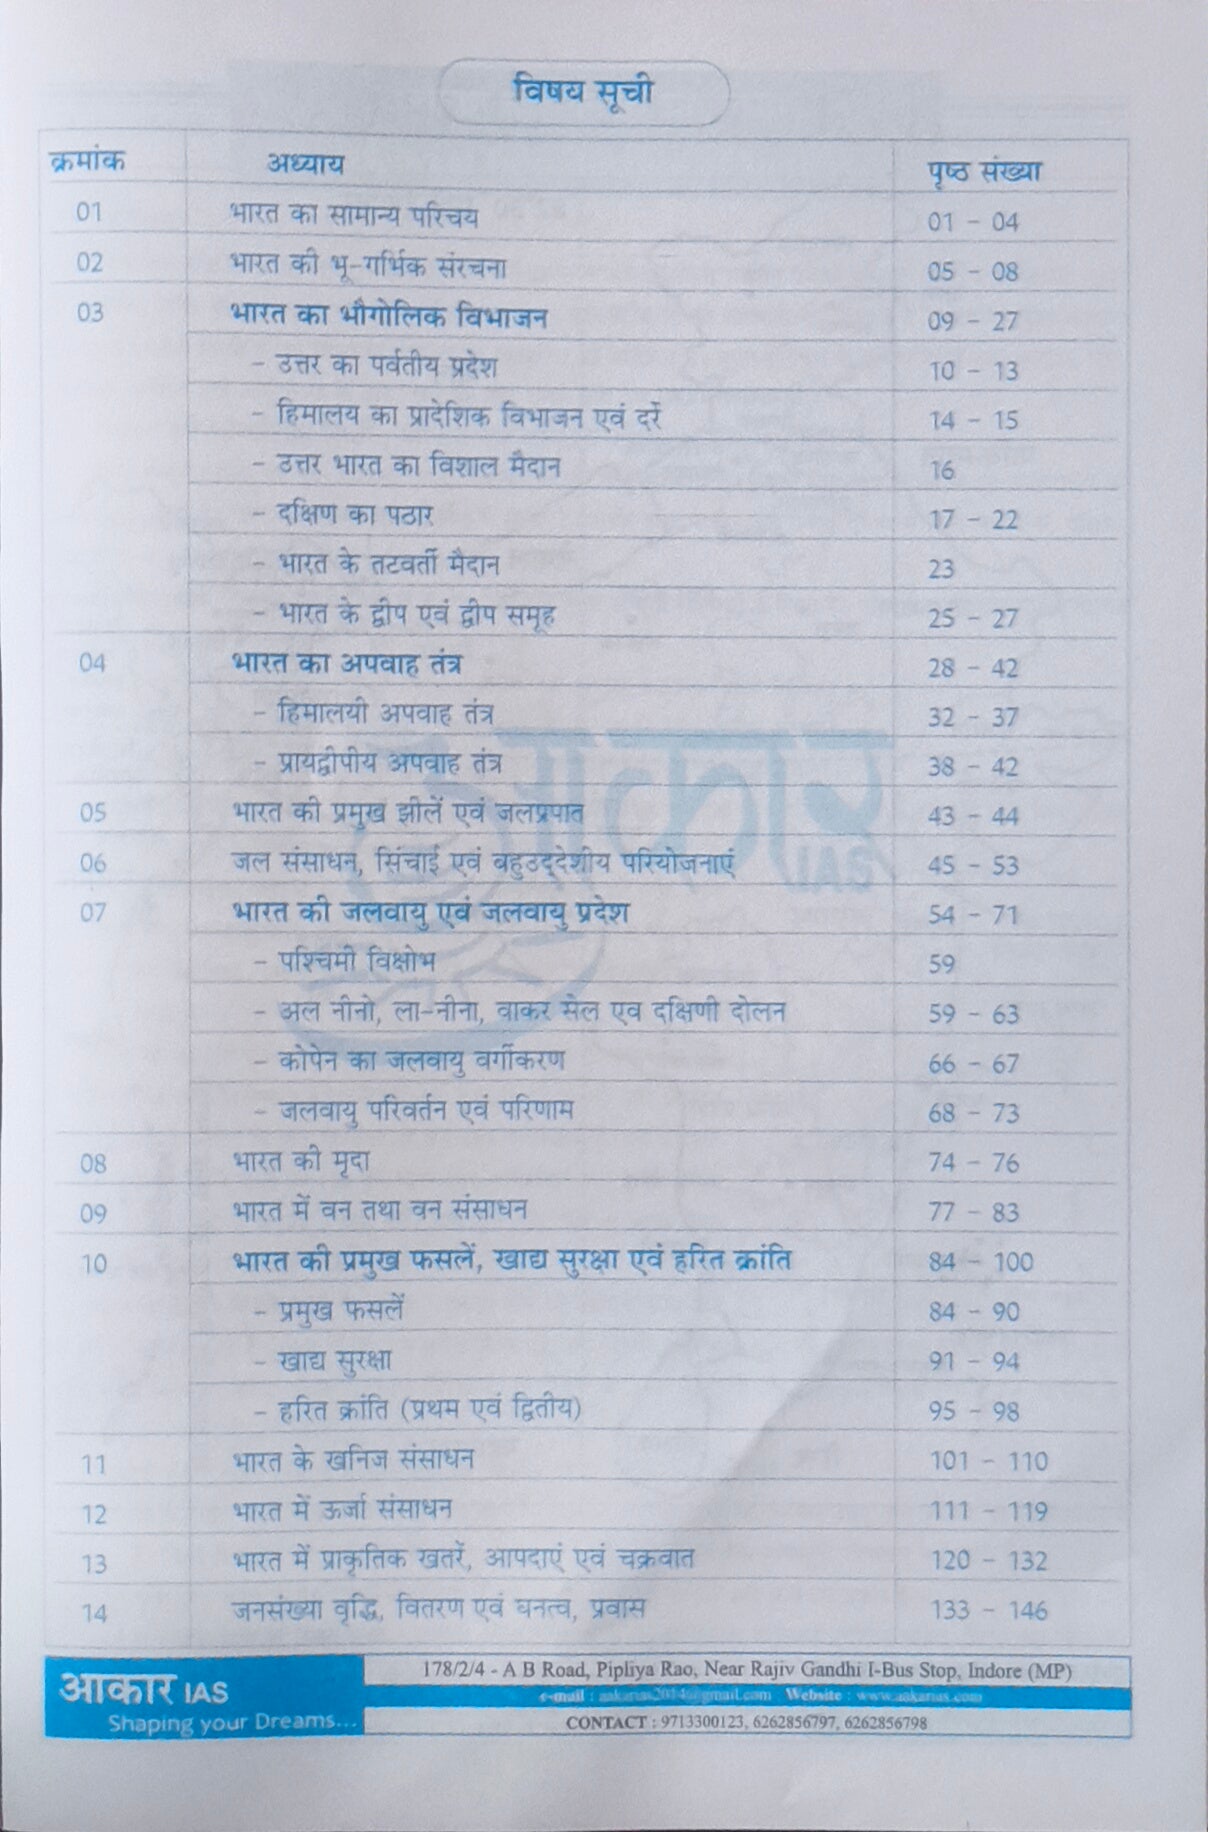 विषय सूची
क्रमांक अध्याय पृष्ठ संख्या
01 भारत का सामान्य परिचय 01 - 04
02 भारत की भू-गर्भिक संरचना 05 - 08
03 भारत का भौगोलिक विभाजन 09 - 27
- उत्तर का पर्वतीय प्रदेश 10 - 13
- हिमालय का प्रादेशिक विभाजन एवं दर्रे 14 - 15
- उत्तर भारत का विशाल मैदान 16
- दक्षिण का पठार 17 - 22
- भारत के तटवर्ती मैदान 23
- भारत के द्वीप एवं द्वीप समूह 25 - 27
04 भारत का अपवाह तंत्र 28 - 42
- हिमालयी अपवाह तंत्र 32 - 37
- प्रायद्वीपीय अपवाह तंत्र 38 - 42
05 भारत की प्रमुख झीलें एवं जलप्रपात 43 - 44
06 जल संसाधन, सिंचाई एवं बहुउद्देशीय परियोजनाएं 45 - 53
07 भारत की जलवायु एवं जलवायु प्रदेश 54 - 71
- पश्चिमी विक्षोभ 59
- अल नीनो, ला-नीना, वाकर सेल एव दक्षिणी दोलन 59 - 63
- कोपेन का जलवायु वर्गीकरण 66 - 67
- जलवायु परिवर्तन एवं परिणाम 68 - 73
08 भारत की मृदा 74 - 76
09 भारत में वन तथा वन संसाधन 77 - 83
10 भारत की प्रमुख फसलें, खाद्य सुरक्षा एवं हरित क्रांति 84 - 100
- प्रमुख फसलें 84 - 90
- खाद्य सुरक्षा 91 - 94
- हरित क्रांति (प्रथम एवं द्वितीय) 95 - 98
11 भारत के खनिज संसाधन 101 - 110
12 भारत में ऊर्जा संसाधन 111 - 119
13 भारत में प्राकृतिक खतरें, आपदाएं एवं चक्रवात 120 - 132
14 जनसंख्या वृद्धि, वितरण एवं घनत्व, प्रवास 133 - 146
आकार IAS
आकार IAS
Shaping your Dreams...
178/2/4 - A B Road, Pipliya Rao, Near Rajiv Gandhi I-Bus Stop, Indore (MP)
e-mail : aakarias2014@gmail.com Website : www.aakarias.com
CONTACT : 9713300123, 6262856797, 6262856798